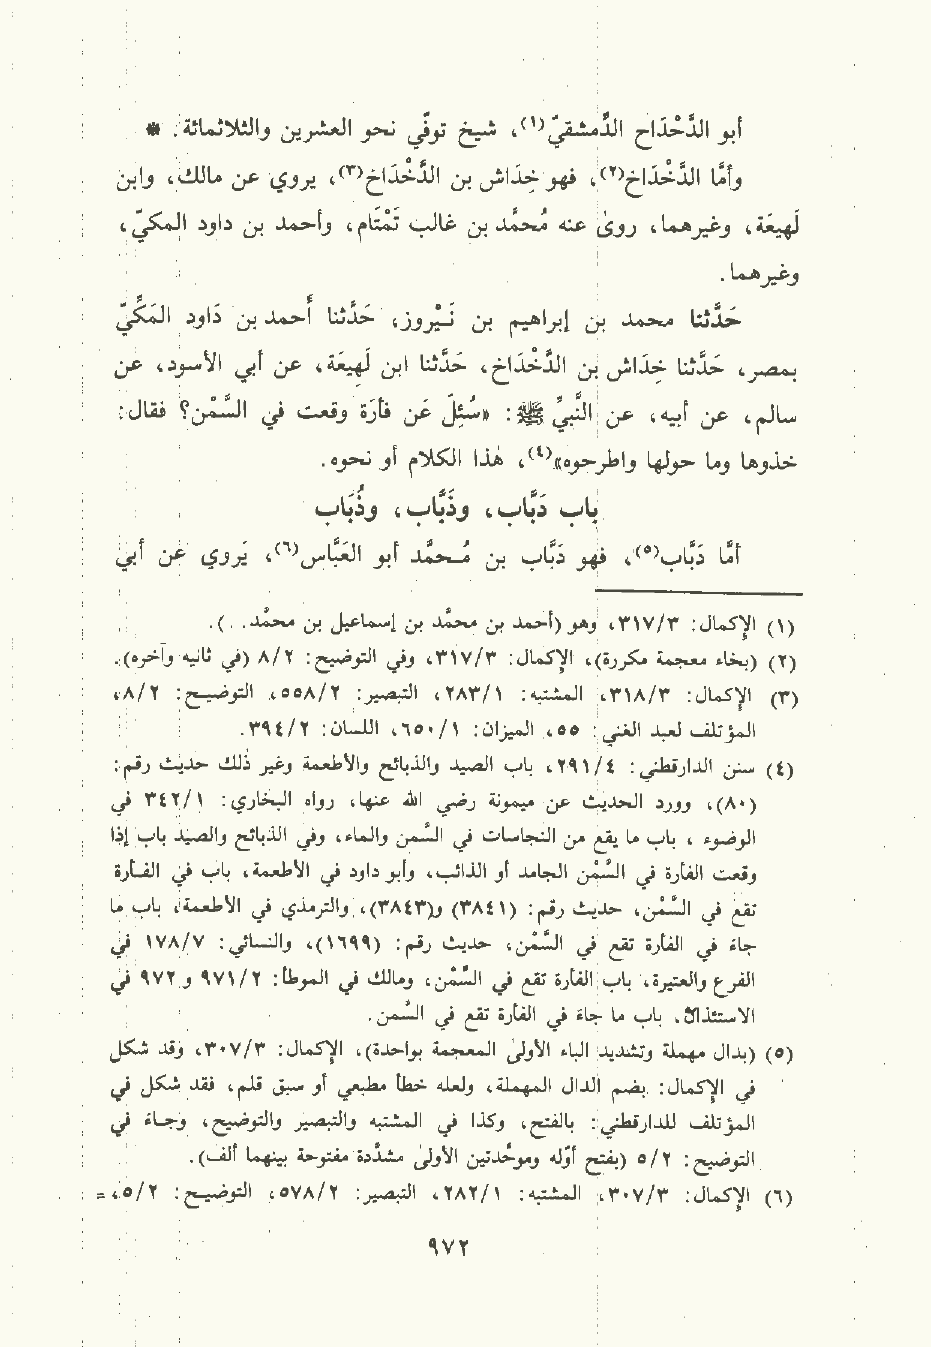 أبو الدَّحْدَاح الدِّمشقيّ(١)، شيخ توفّي نحو العشرين والثلاثمائة. *
وأمَّا الدَّخْدَاخ(٢)، فهو خِدَاش بن الدَّخْدَاخ(٣)، يروي عن مالك، وابن
لَهيعَة، وغيرهما، روىٰ عنه مُحمَّد بن غالب تَمْتَام، وأحمد بن داود المكيّ،
وغيرهما.
حَدَّثنا محمد بن إبراهيم بن نَيْروز، حَدَّثنا أَحمد بن دَاود المَكِّيّ
بمصر، حَدَّثنا خِدَاش بن الدَّخْدَاخ، حَدَّثنا ابن لَهيعَة، عن أبي الأسود، عن
سالم، عن أبيه، عن النَّبيِّ ﷺ: «سُئِلَ عَن فَأرَة وقعت في السَّمْن؟ فقال:
خذوها وما حولها واطرحوه»(٤)، هٰذا الكلام أو نحوه.
باب دَبَّاب، وذَبَّاب، وذُبَاب
أمَّا دَبَّاب(٥)، فهو دَبَّاب بن مُـحمَّد أبو العَبَّاس(٦)، يَروي عن أبي
(١) الإكمال: ٣١٧/٣، وهو (أحمد بن محمَّد بن إسماعيل بن محمَّد. . .).
(٢) (بخاء معجمة مكررة)، الإكمال: ٣١٧/٣، وفي التوضيح: ٨/٢ (في ثانيه وآخره).
(٣) الإكمال: ٣١٨/٣، المشتبه: ٢٨٣/١، التبصير: ٥٥٨/٢، التوضيـح: ٨/٢،
المؤتلف لعبد الغني: ٥٥، الميزان: ٦٥٠/١، اللسان: ٣٩٤/٢.
(٤) سنن الدارقطني: ٢٩١/٤، باب الصيد والذبائح والأطعمة وغير ذلك حديث رقم:
(٨٠)، وورد الحديث عن ميمونة رضي الله عنها، رواه البخاري: ٣٤٢/١ في
الوضوء ، باب ما يقع من النجاسات في السَّمن والماء، وفي الذبائح والصيد باب إذا
وقعت الفأرة في السَّمْن الجامد أو الذائب، وأبو داود في الأطعمة، باب في الفـأرة
تقع في السَّمْن، حديث رقم: (٣٨٤١) و(٣٨٤٣)، والترمذي في الأطعمة، باب ما
جاءَ في الفأرة تقع في السَّمْن، حديث رقم: (١٦٩٩)، والنسائي: ١٧٨/٧ في
الفرع والعتيرة، باب الفأرة تقع في السَّمْن، ومالك في الموطأ: ٩٧١/٢ و ٩٧٢ في
الاستئذان، باب ما جاءَ في الفأرة تقع في السَّمن.
(٥) (بدال مهملة وتشديد الباء الأولىٰ المعجمة بواحدة)، الإكمال: ٣٠٧/٣، وقد شكل
في الإكمال: بضم الدال المهملة، ولعله خطأ مطبعي أو سبق قلم، فقد شكل في
المؤتلف للدارقطني: بالفتح، وكذا في المشتبه والتبصير والتوضيح، وجـاءَ في
التوضيح: ٥/٢ (بفتح أوّله وموحَّدتين الأولىٰ مشدَّدة مفتوحة بينهما ألف).
(٦) الإكمال: ٣٠٧/٣، المشتبه: ٢٨٢/١، التبصير: ٥٧٨/٢، التوضيـح: ٥/٢، =
٩٧٢